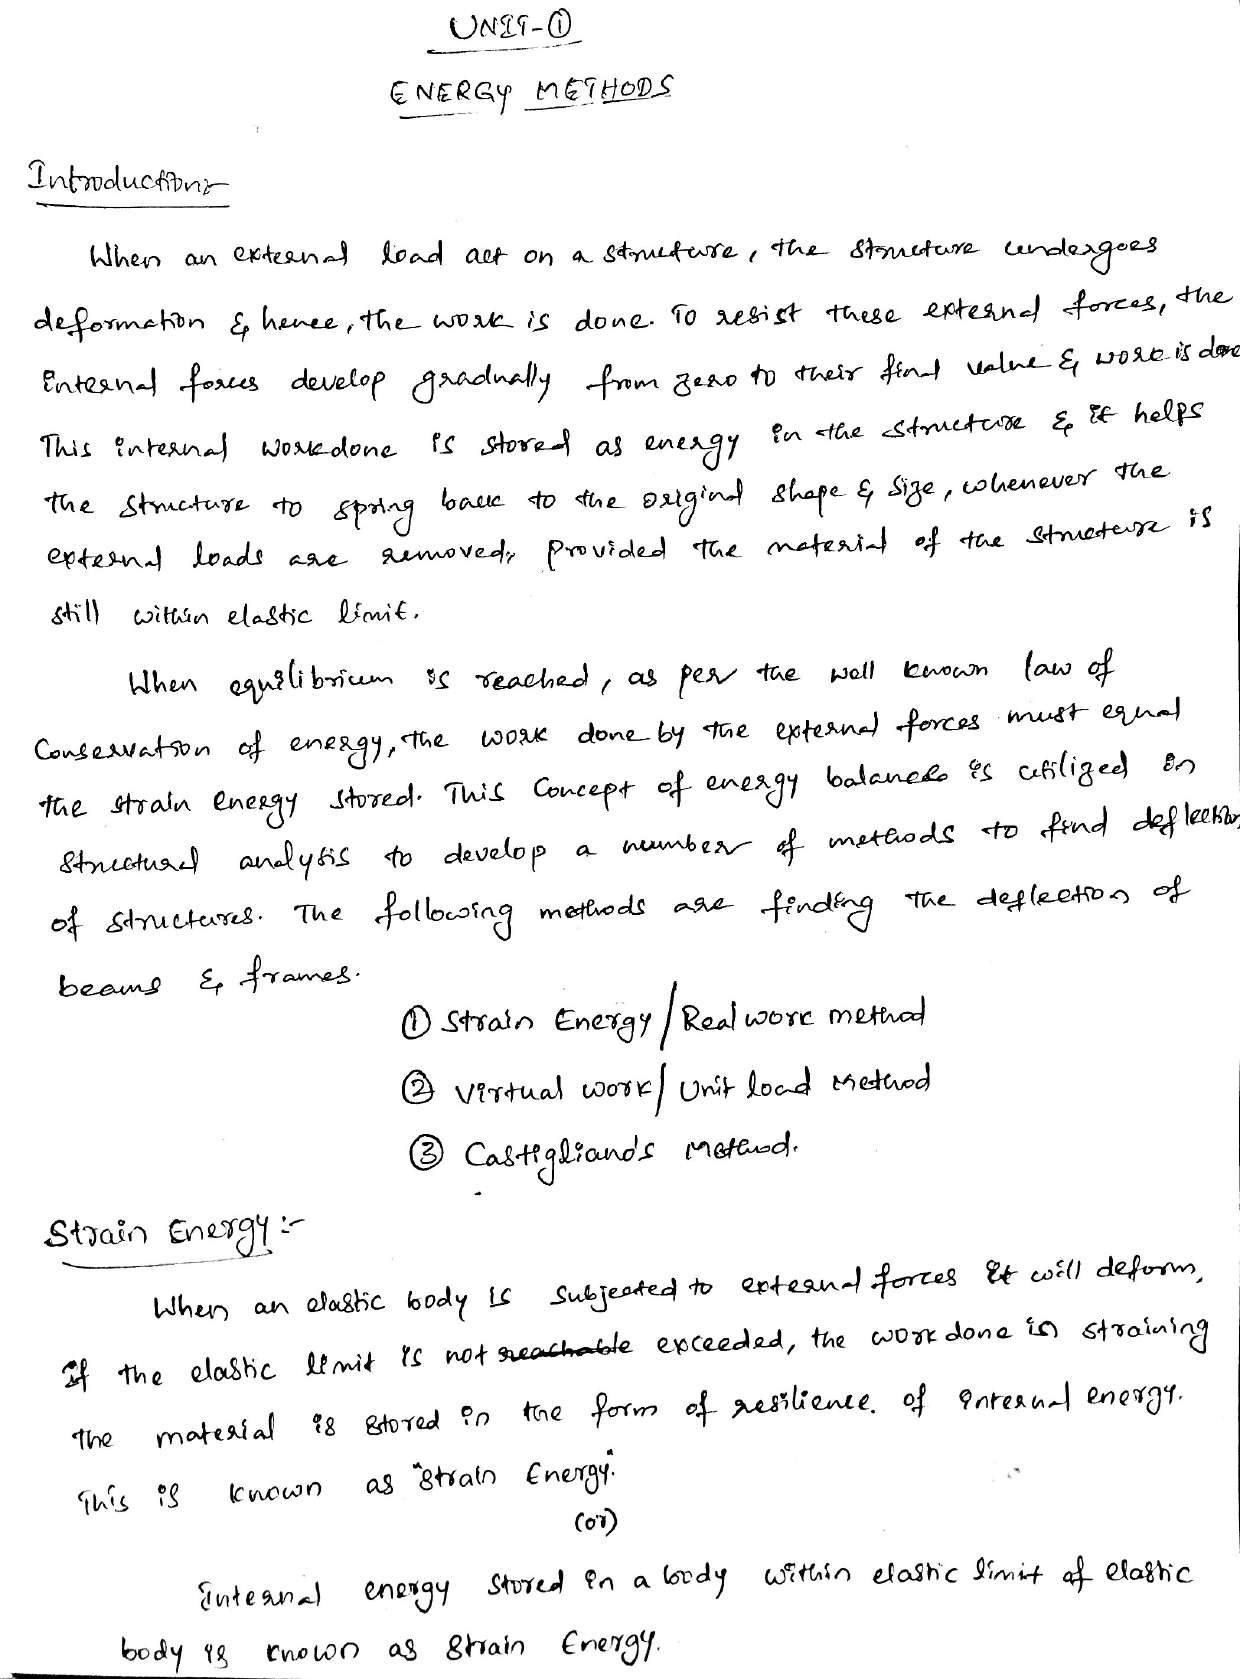 UNIT-①
ENERGY METHODS
Introduction:-
When an external load act on a structure, the structure undergoes
deformation & hence, the work is done. To resist these external forces, the
internal forces develop gradually from zero to their final value & work is done
This internal workdone is stored as energy in the structure & it helps
the structure to spring back to the original shape & size, whenever the
external loads are removed, provided the material of the structure is
still within elastic limit.
When equilibrium is reached, as per the well known law of
Conservation of energy, the work done by the external forces must equal
the strain energy stored. This concept of energy balance is utilized in
structural analysis to develop a number of methods to find deflection
of structures. The following methods are finding the deflection of
beams & frames.
① Strain Energy/Real work method
② Virtual work/Unit load Method
③ Castigliano's Method.
Strain Energy:-
When an elastic body is subjected to external forces it will deform,
If the elastic limit is not reachable exceeded, the work done in straining
the material is stored in the form of resilience. of internal energy.
This is known as "Strain Energy."
(or)
Internal energy stored in a body within elastic limit of elastic
body is known as Strain Energy.